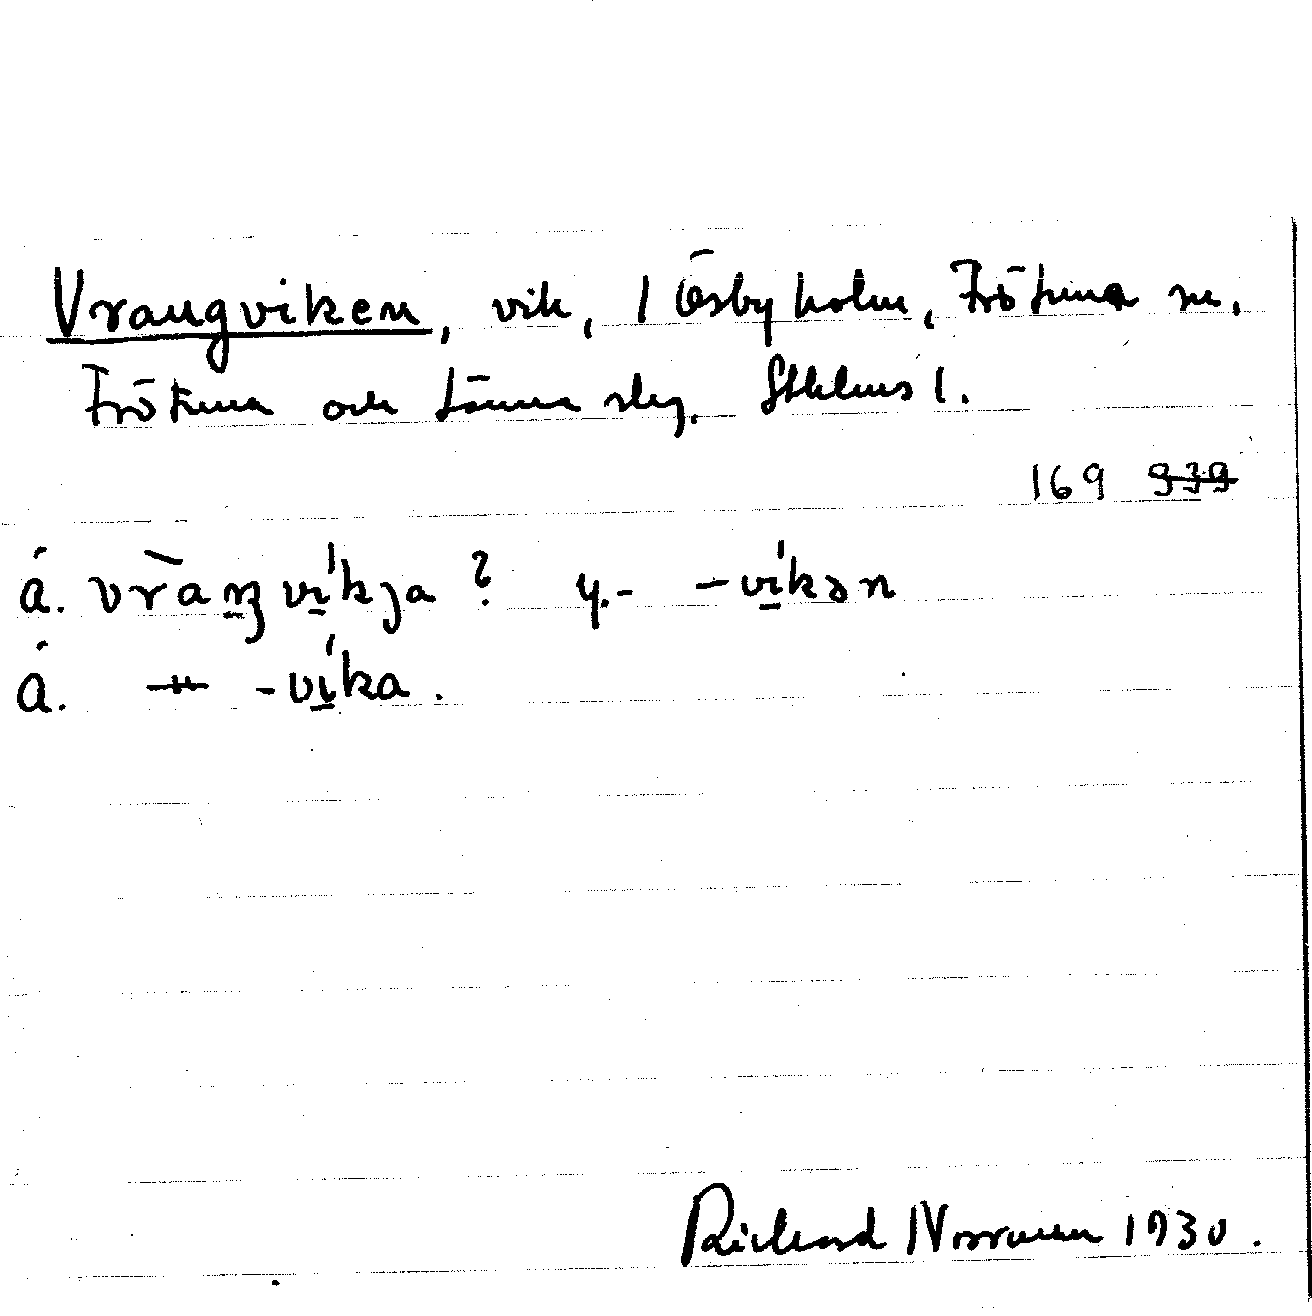 Vrangviken, vik, / Ösbyholm, Frötuna sn,
Frötuna och Länna slg. Sthlms l.
169 939
å. vràŋvíkja ? y.- -víkən
å. -"- -víka.
Richard Norrman 1930.